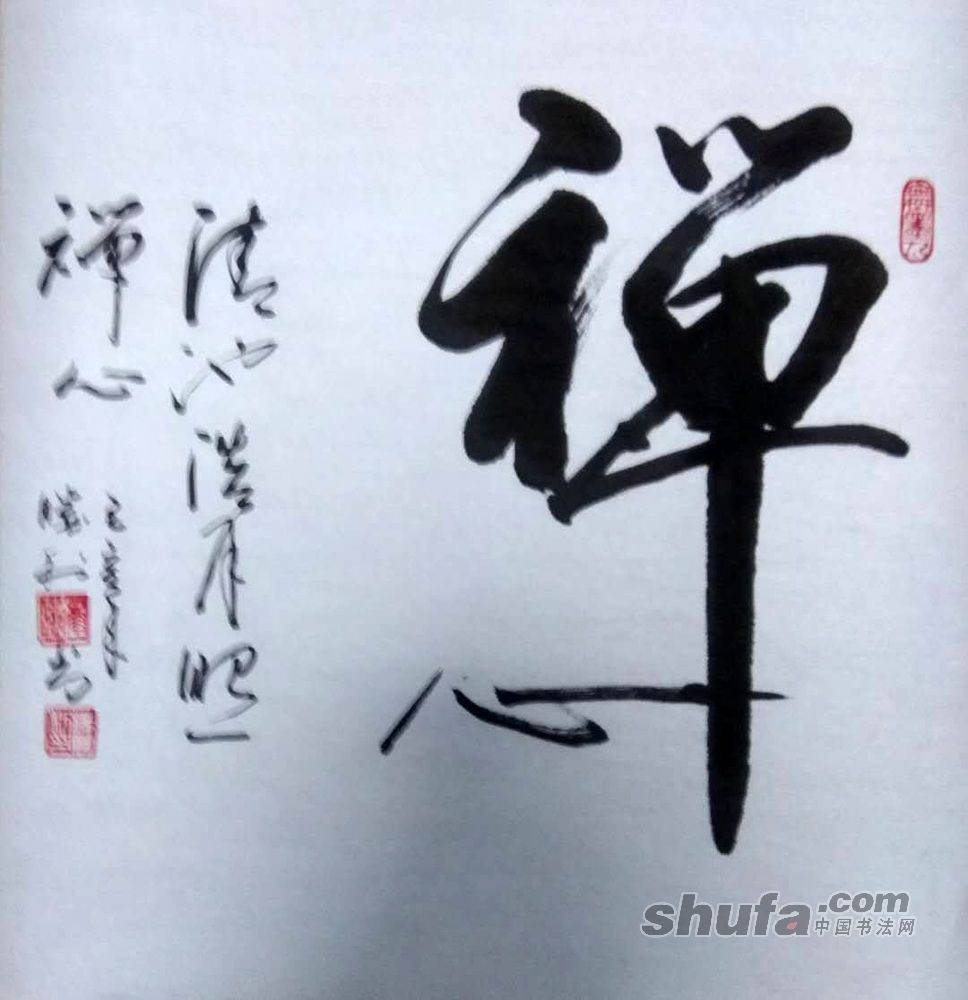 禅心
清池浩月照
禅心
胜利书
shufa.com
中国书法网